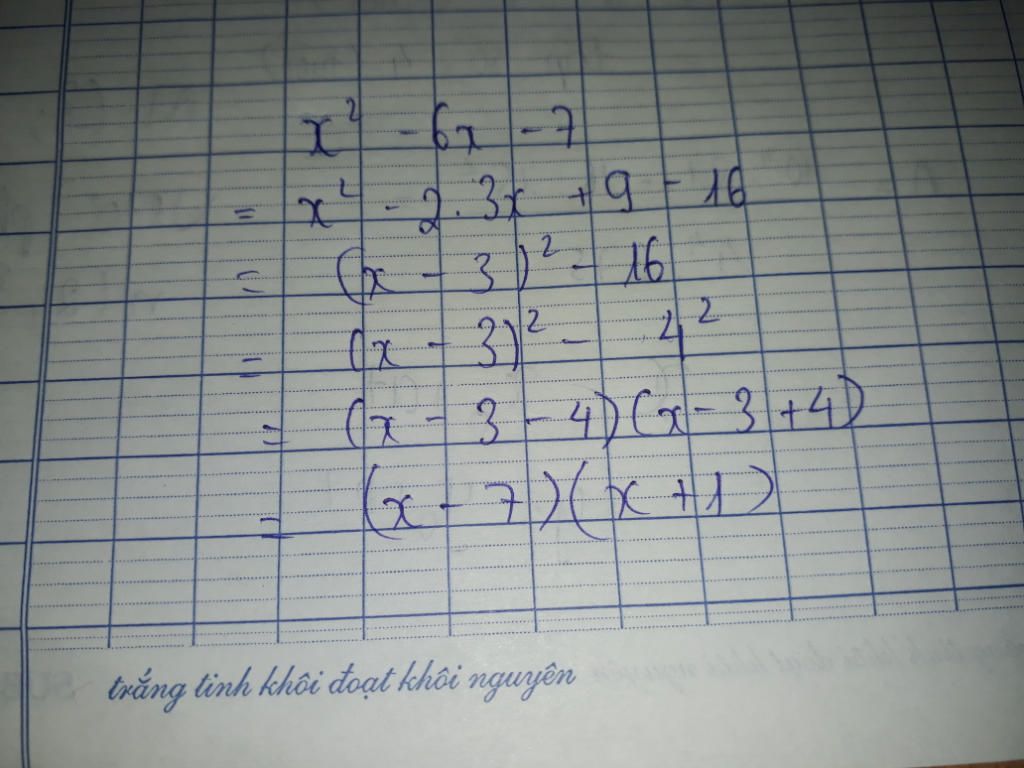 x² - 6x - 7
= x² - 2.3x + 9 - 16
= (x - 3)² - 16
= (x - 3)² - 4²
= (x - 3 - 4)(x - 3 + 4)
= (x - 7)(x + 1)
trắng tinh khôi đoạt khôi nguyên